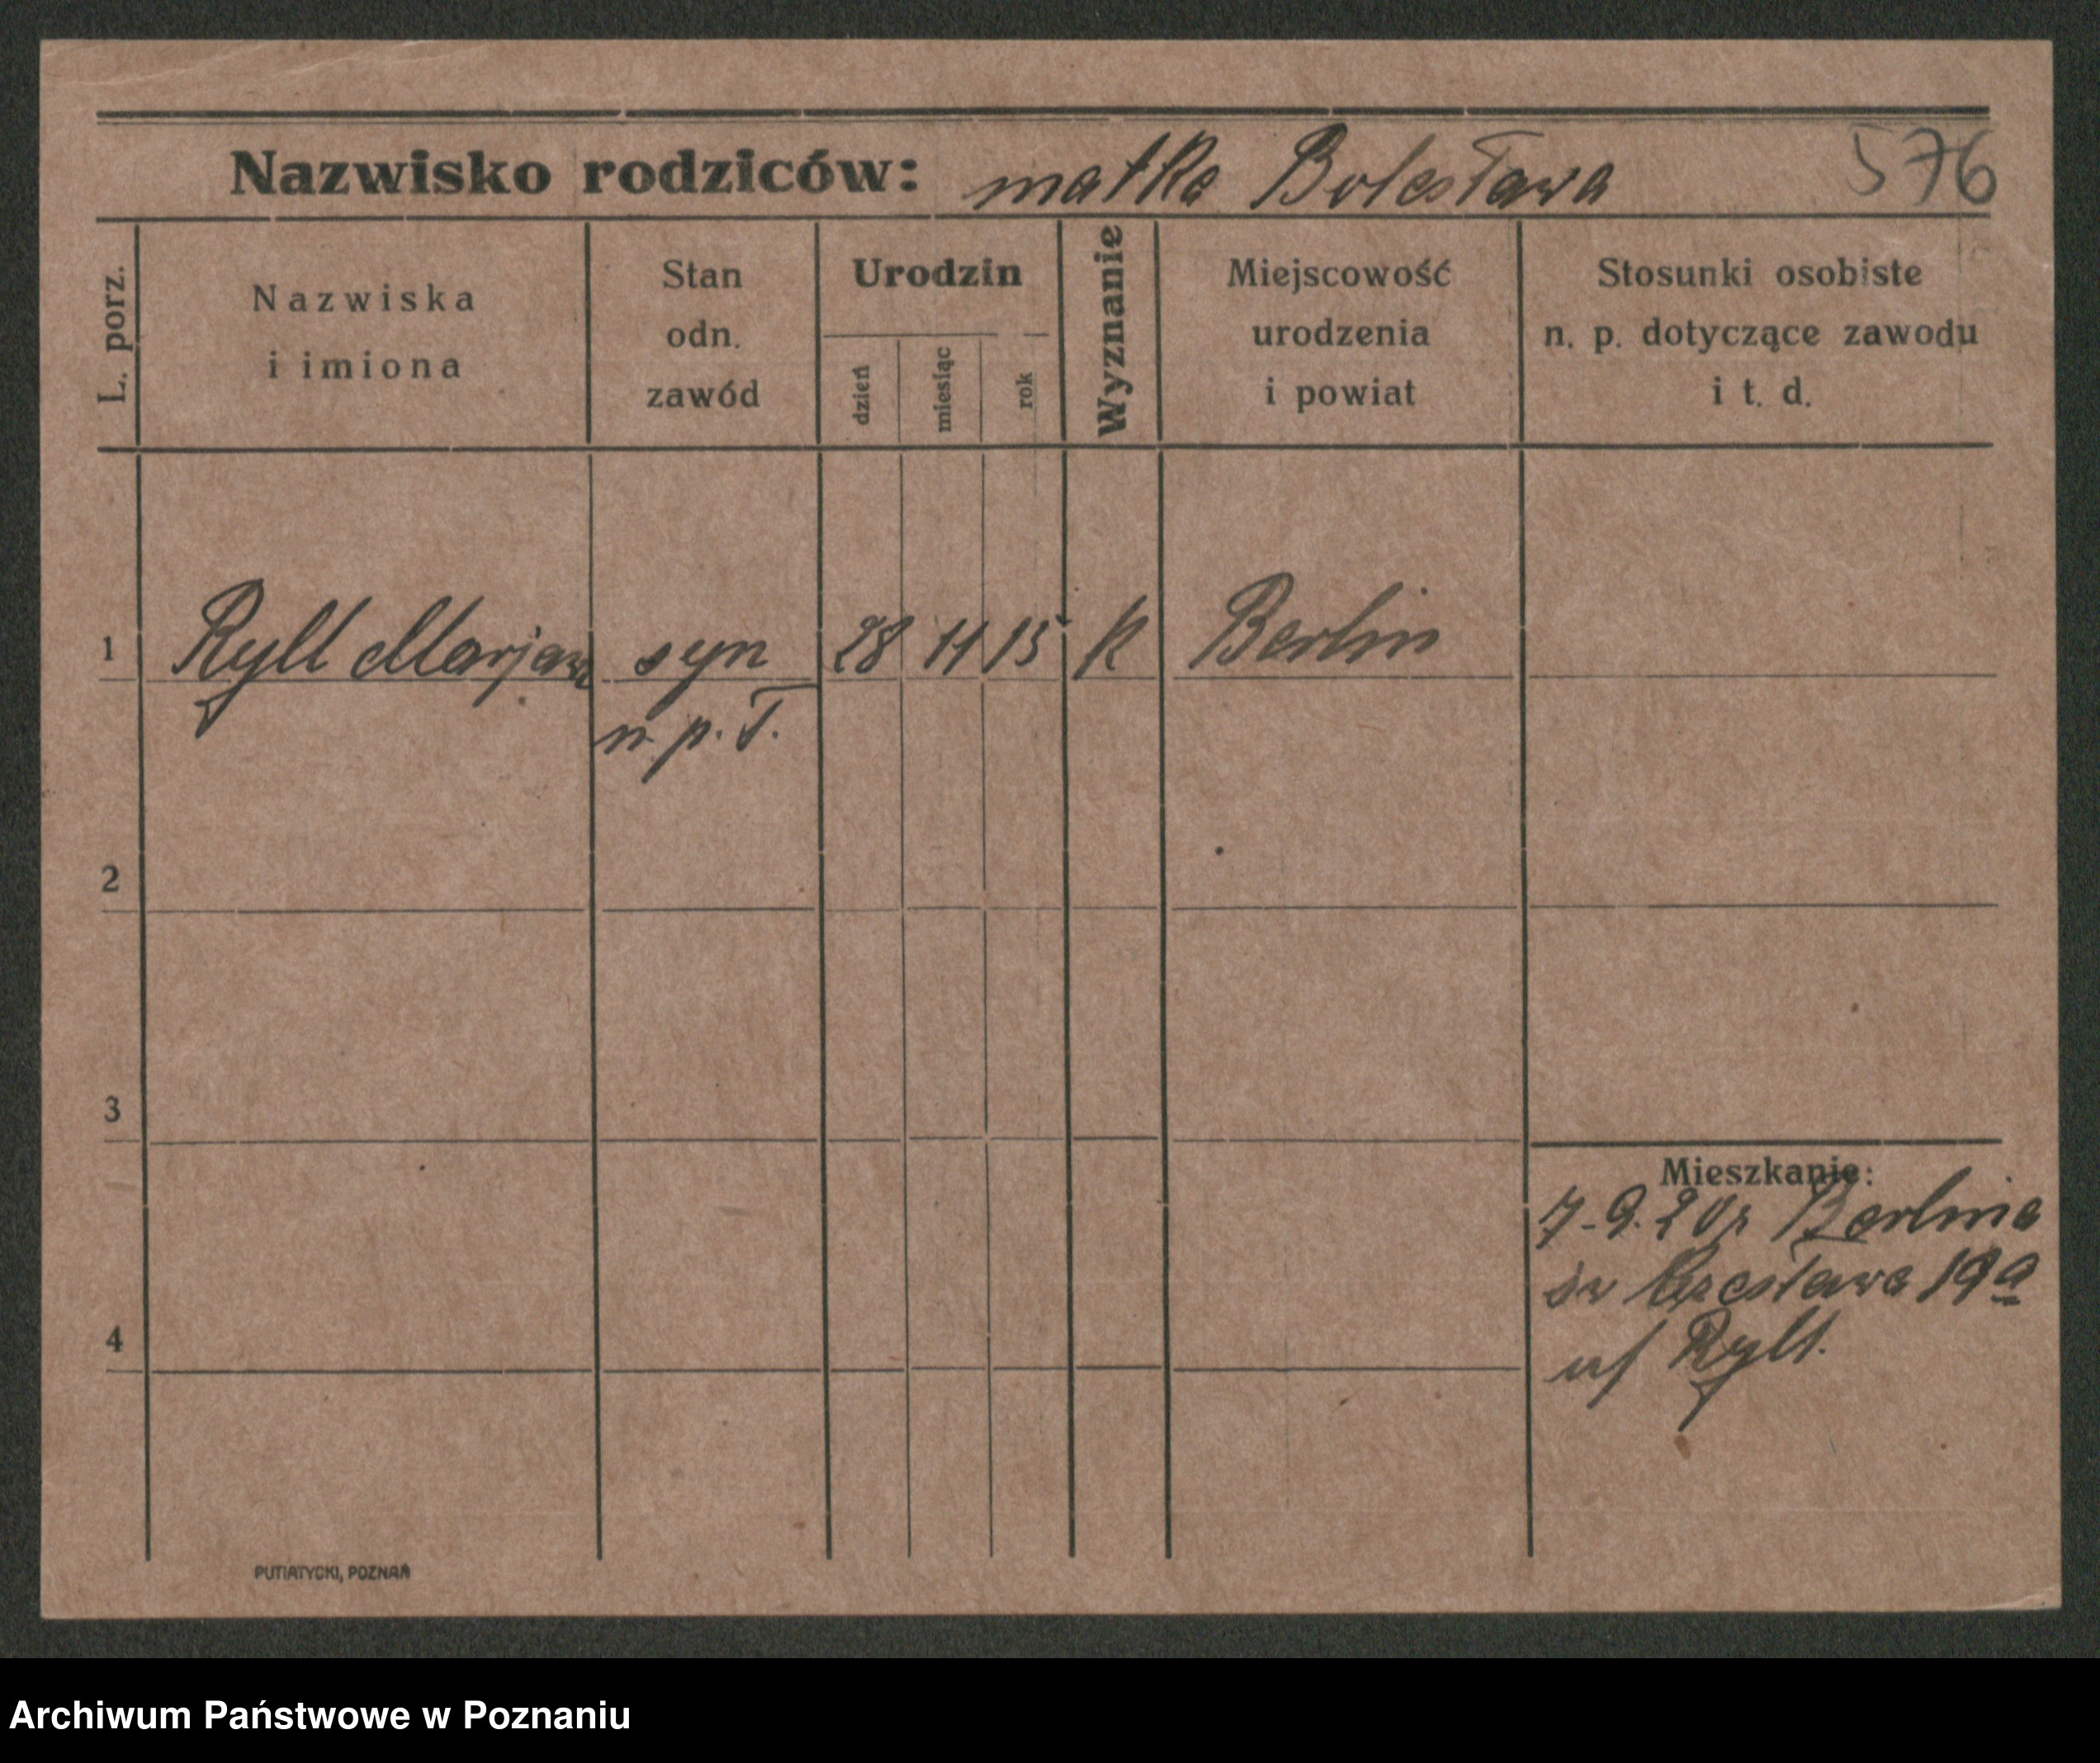 Nazwisko rodziców: matka Bolesława 576
L. porz.
Nazwiska
i imiona
Stan
odn.
zawód
Urodzin
dzień
miesiąc
rok
Wyznanie
Miejscowość
urodzenia
i powiat
Stosunki osobiste
n. p. dotyczące zawodu
i t. d.
1 Ryll Marjan syn 28 11 15 K Berlin
n. p. T.
2
3
4
Mieszkanie:
7-9.20 z Berlina
św Czesława 19a
u/ Ryll.
PUTIATYCKI, POZNAŃ
Archiwum Państwowe w Poznaniu